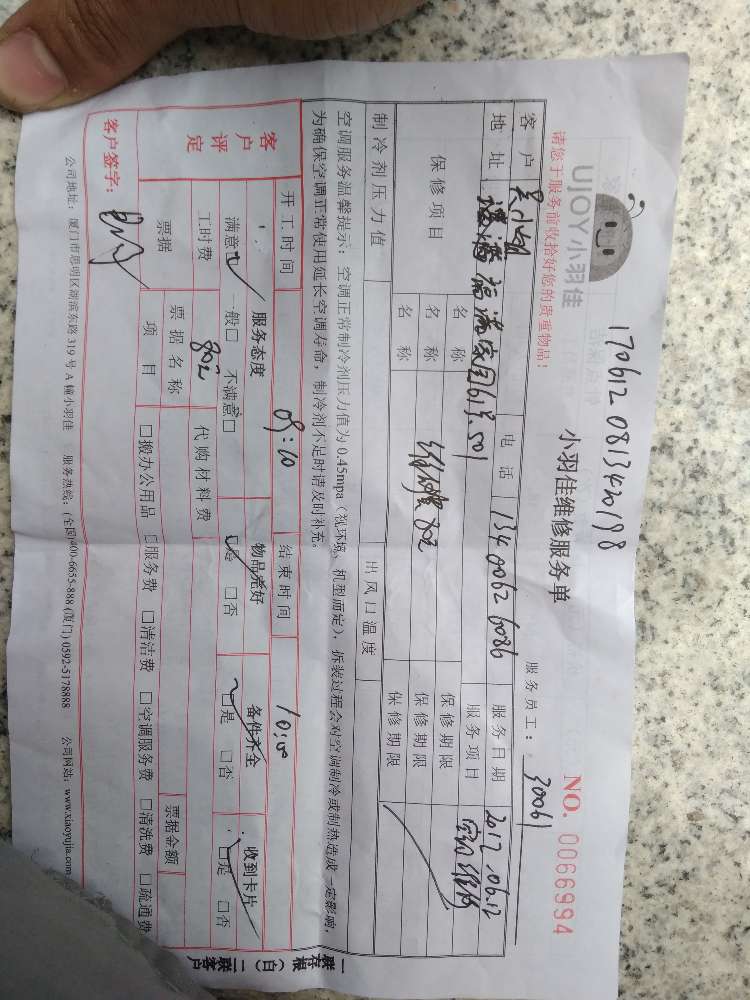 170612 0813420198
UJOY小羽佳
小羽佳维修服务单
NO. 0066994
请您于服务前收拾好您的贵重物品!
服务员工: 30061
客户 电话 134 0062 6086 服务日期 2017.06.12
地址 福满家园 501 服务项目 空调维修
保修项目 名称 保修期限
名称 维修费 802 保修期限
名称 保修期限
制冷剂压力值 出风口温度
空调服务温馨提示: 空调正常制冷剂压力值为0.45mpa(视环境、机型而定),拆装过程会对空调制冷或制热造成一定影响,
为确保空调正常使用延长空调寿命,制冷剂不足时请及时补充。
客户评定 开工时间 09:10 结束时间 10:00
服务态度 物品完好 备件齐全 收到卡片
满意□ 一般□ 不满意□ □是 □否 □是 □否 □是 □否
工时费 802 代购材料费
票据 票据名称 票据金额
项目 □搬办公用品 □服务费 □清洁费 □空调服务费 □清洗费 □疏通费
客户签字:
一联存根(白) 二联客户
公司地址: 厦门市思明区湖滨东路319号A幢小羽佳 服务热线: (全国)400-6655-888 (厦门) 0592-5178888 公司网站: www.xiaoyujia.com